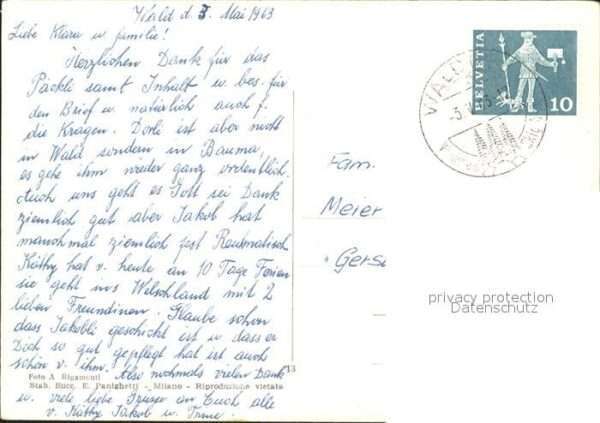 Wald d. 3. Mai 1963
Liebe Klara u familie!
Herzlichen Dank für das
Päckli samt Inhalt u. bes. für
den Brief u. natürlich auch f.
die Kragen. Dorli ist aber nicht
in Wald sondern in Bauma,
es gehe ihm wieder ganz ordentlich.
Auch uns geht es Gott sei Dank
ziemlich gut aber Jakob hat
manchmal ziemlich fest Reumatisch
Käthy hat v. heute an 10 Tage Ferien
sie geht ins Welschland mit 2
lieben Freundinen. Glaube schon
dass Jakobli geschickt ist u dass er
Doch so gut gepflegt hat ist auch
schön v. ihm. Also nochmals vielen Dank
u. viele liebe Grüsse an Euch alle
v. Käthy Jakob u.
HELVETIA
10
WALD
Fam.
Meier
Gerse
privacy protection
Datenschutz
13
Foto A. Rigamonti
Stab. Succ. E. Panighetti - Milano - Riproduzione vietata